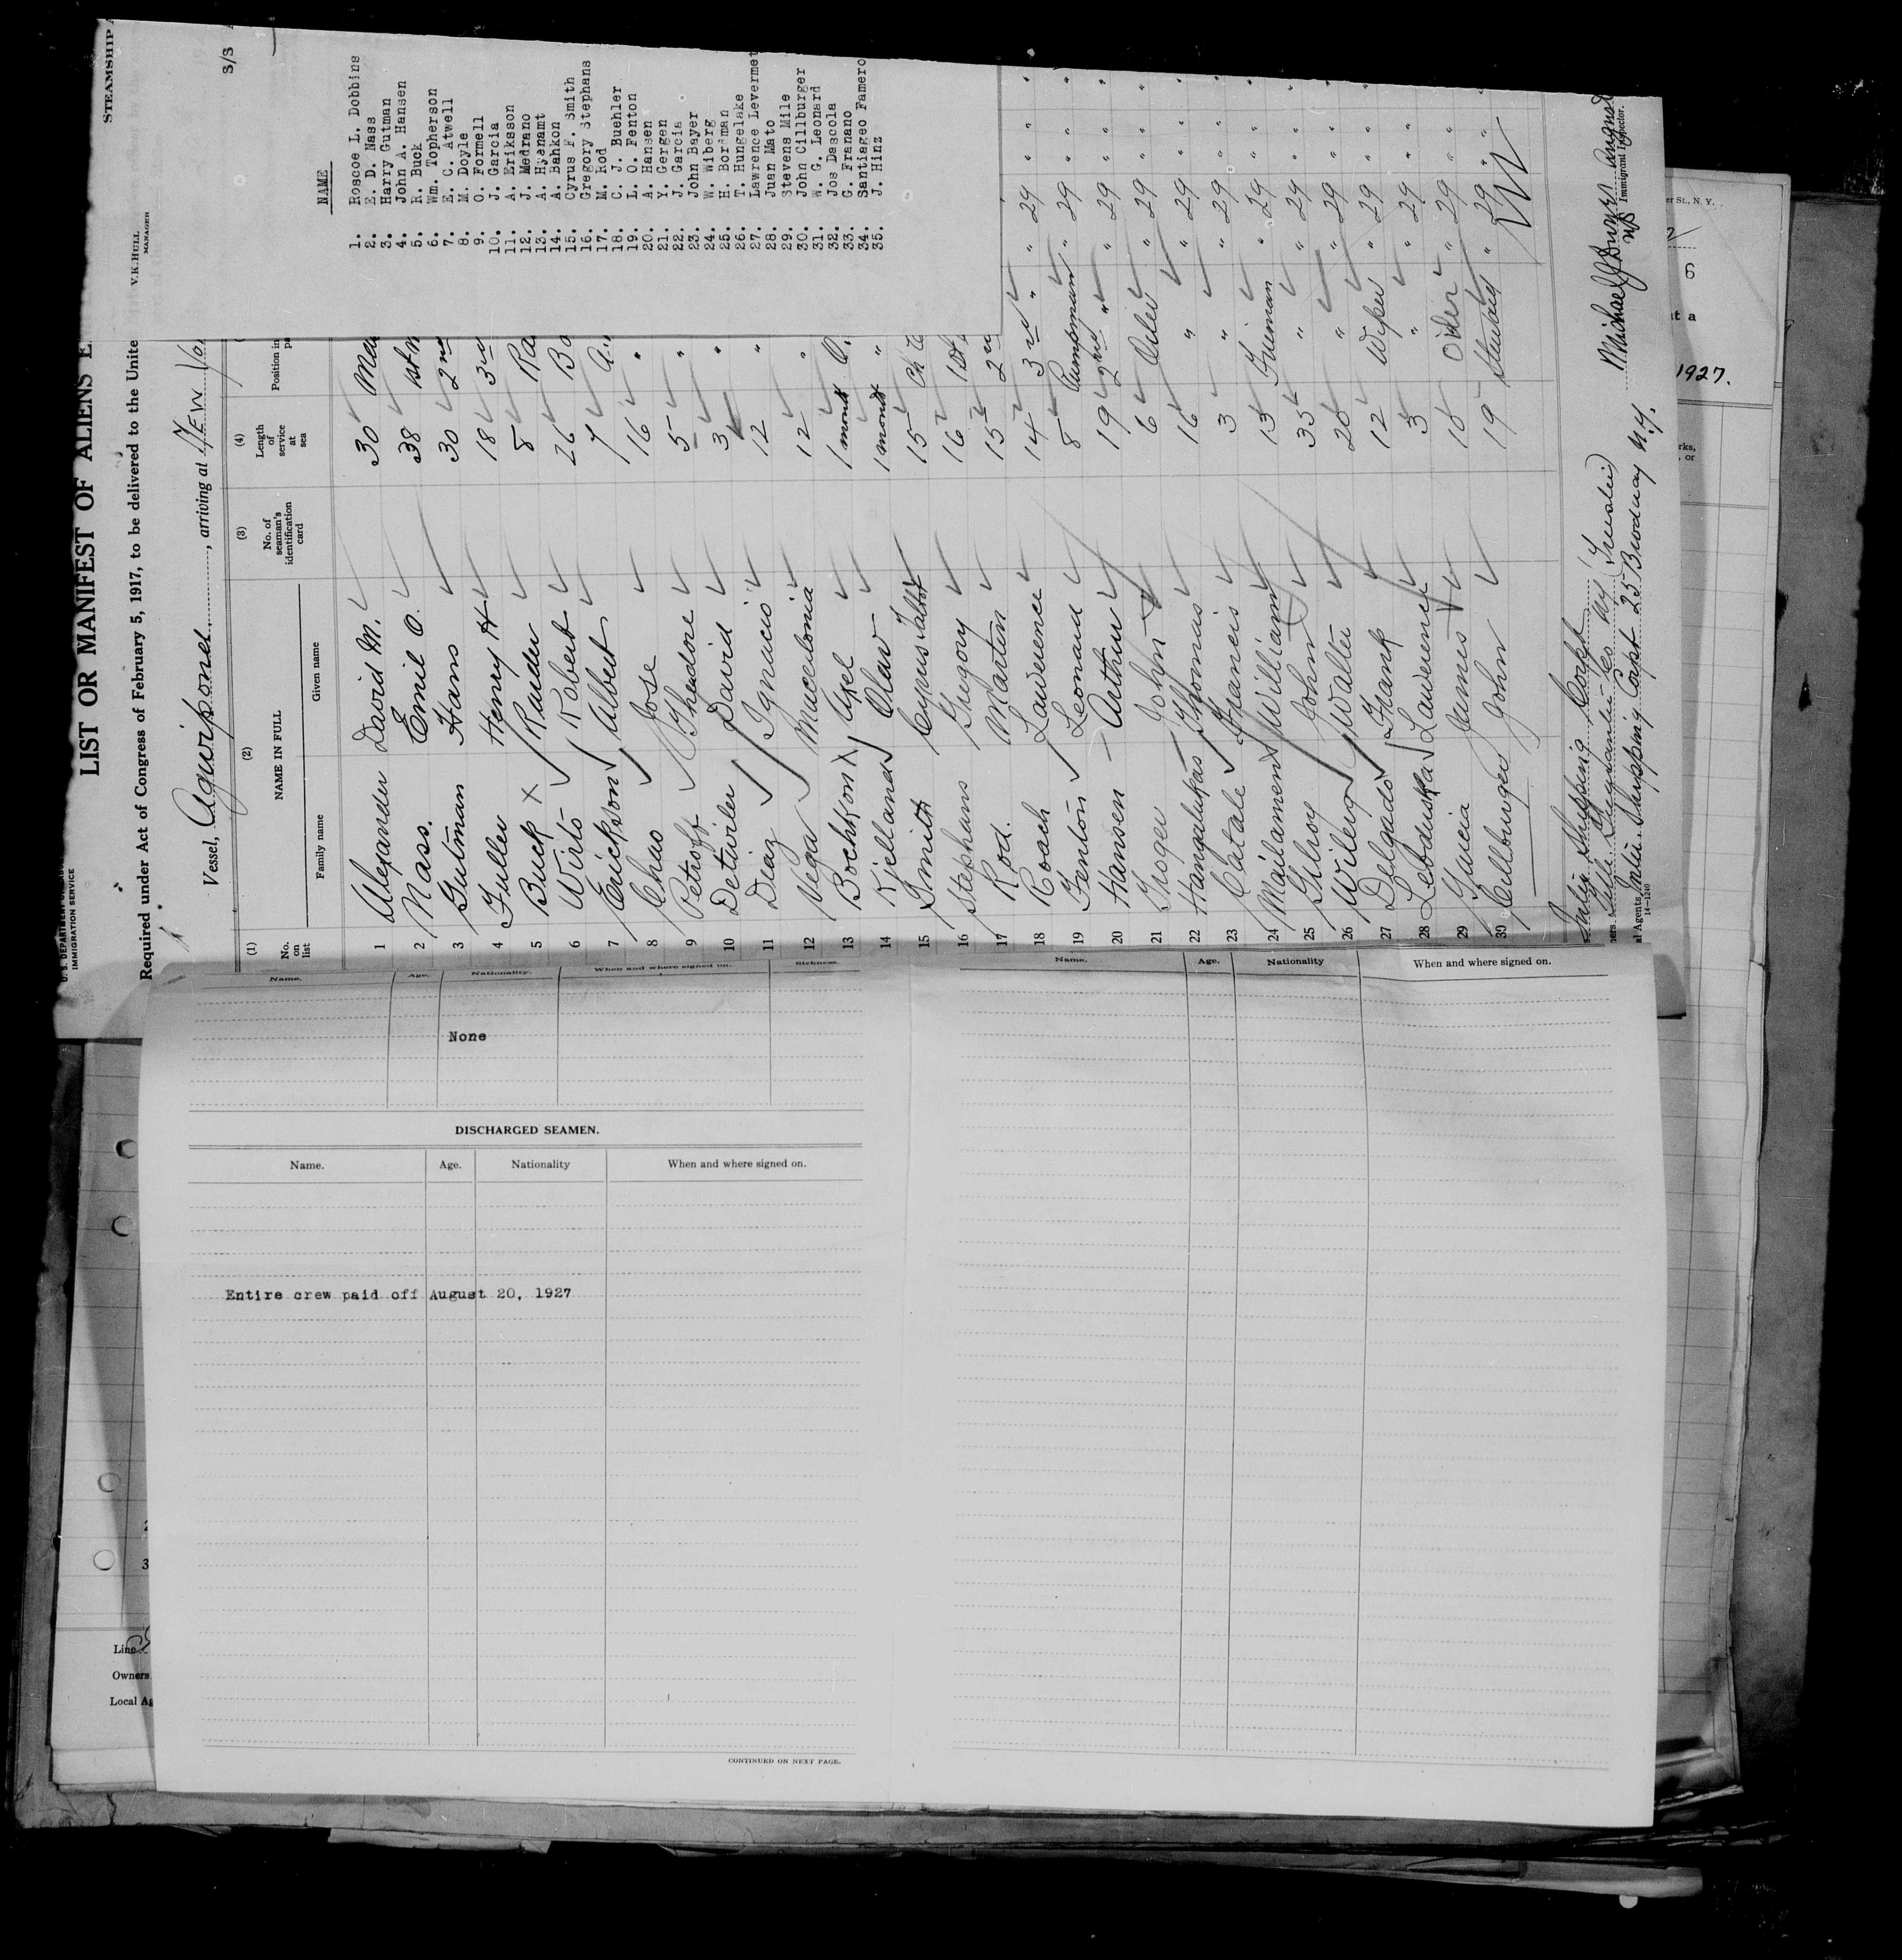 STEAMSHIP
V.K.HULL
MANAGER
S/S
NAME
1. Roscoe L. Dobbins
2. E. D. Nass
3. Harry Gutman
4. John A. Hansen
5. R. Buck
6. Wm. Topherson
7. E. C. Atwell
8. M. Doyle
9. O. Formell
10. J. Garcia
11. A. Eriksson
12. J. Medrano
13. A. Hyenamt
14. A. Bahkon
15. Cyrus F. Smith
16. Gregory Stephans
17. M. Rod
18. C. J. Buehler
19. L. O. Fenton
20. A. Hansen
21. Y. Gergen
22. J. Garcia
23. John Bayer
24. W. Wiberg
25. H. Bordman
26. T. Hungelake
27. Lawrence Levermet
28. Juan Mato
29. Stevens Mile
30. John Cillburger
31. W. G. Leonard
32. Jos Dascola
33. G. Franano
34. Santiageo Famero
35. J. Hinz
U. S. DEPARTMENT OF LABOR
IMMIGRATION SERVICE
LIST OR MANIFEST OF ALIENS E
Required under Act of Congress of February 5, 1917, to be delivered to the Unite
Vessel, Agwipond, arriving at New Yor
(1) (2) (3) (4)
No. on list NAME IN FULL No. of seaman's identification card Length of service at sea Position in
Family name Given name
1 Alexander David M. 30 Mas
2 Nass. Emil O. 38 1st m
3 Gutman Hans 30 2nd
4 Fuller Henry H 18 3rd
5 Buck X 8 Ra
6 Wirto Robert 26 Bo
7 Erickson Albert 7 A.
8 Chao Jose 16 "
9 Petroff Theadore 5 "
10 Detwiler David 3 "
11 Diaz Ignacio 12 "
12 Vega 12 "
13 Bochkon X Axel 1 month O.
14 Kjelland Olav 1 month "
15 Smith Cyrus Talbot 15 Ch E
16 Stephans Gregory 16 1st
17 Rod. Martin 15 2nd
18 Roach Lawerence 14 3rd " " 29 " "
19 Fenton Leonard 8 Pumpman " 29 " "
20 Hansen Arthur 19 2nd " " 29 " "
21 John 6 Oiler " 29 " "
22 Hangalukas Thomas 16 " " 29 " "
23 Catale Francis 3 " " 29 " "
24 William 13 Fireman " 29 " "
25 Gilroy John 35 " " 29 " "
26 Wiberg Walter 20 " " 29 " "
27 Delgado Frank 12 Wiper " 29 " "
28 Lawerence 3 " " 29 " "
29 Garcia James 10 Oiler " 29 " "
30 Cillburger John 19 Steward " 29 " "
25 Broadway N.Y.
al Agents
14—1240
Immigrant Inspector.
er St., N. Y.
t a
1927.
rks,
or
Name. Age. Nationality. When and where signed on. Sickness.
None
DISCHARGED SEAMEN.
Name. Age. Nationality When and where signed on.
Entire crew paid off August 20, 1927
CONTINUED ON NEXT PAGE.
Name. Age. Nationality When and where signed on.
3
Line
Owners
Local Ag